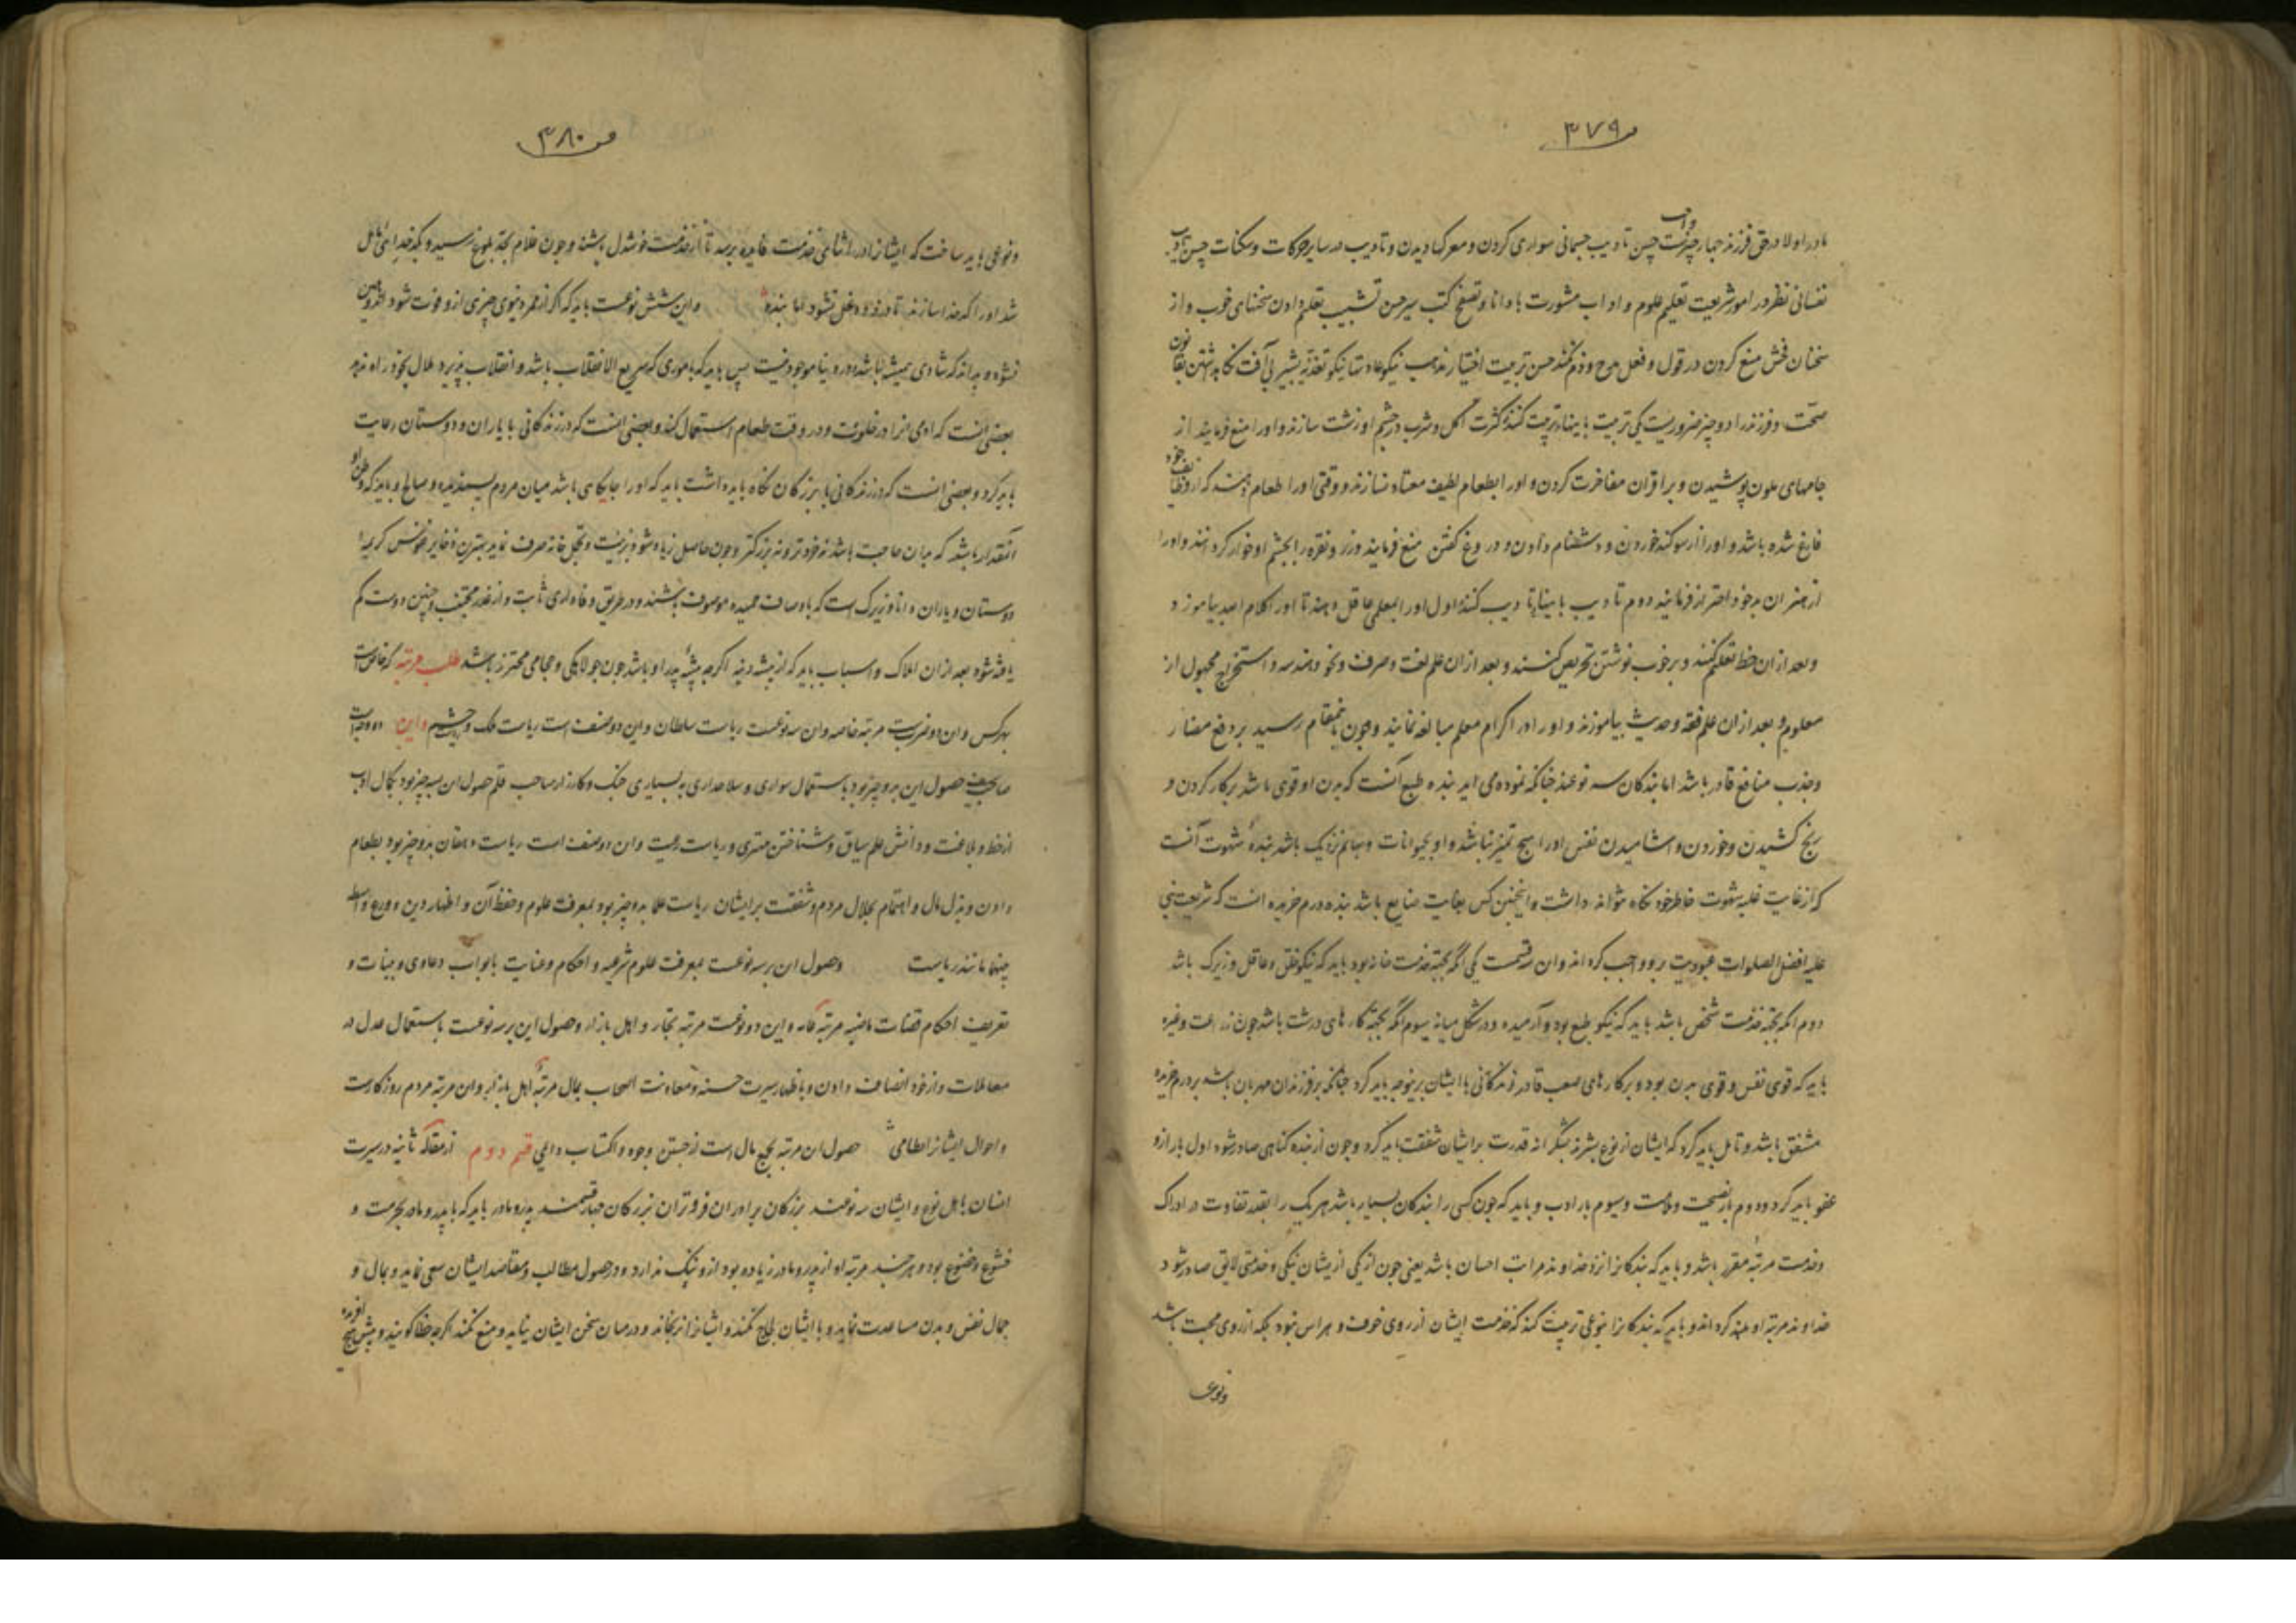 ۳۷۹
مادر اولا در حق فرزند چهار چیزست حسن تادیب جسمانی سواری کردن و معرکه دیدن و تادیب در سایر حرکات و سکنات حسن تادیب
نفسانی نظر در امور شریعت تعلیم علوم و اداب مشورت با دانا و تصفح کتب سیر حسن تعلیم دادن سخنهای خوب و از
سخنان فحش منع کردن در قول و فعل مدح و ذم کنند حسن تربیت اختیار نیکو عادت نیکو تغذیه بی آفت نگاه داشتن بقانون
صحت و فرزند را دو چیز ضروریست یکی تربیت کنند کثرت اکل و شرب در چشم او زشت سازند و او را منع فرمایند از
جامهای ملون پوشیدن و بر اقران مفاخرت کردن و او را بطعام لطیف معتاد نسازند و وقتی او را طعام دهند که از وظایف خود
فارغ شده باشد و او را از سوکند خوردن و دشنام دادن و دروغ کفتن منع فرمایند و زر و نقره را بچشم او خوار کردانند و او را
از احتراز فرمایند دوم تادیب کنند اول او را بمعلمی عاقل دهند تا او را کلام بیاموزد و
و بعد از ان خط تعلیم کنند و بر خوب نوشتن تحریص کنند و بعد از ان علم لغت و صرف و نحو و هندسه و استخراج مجهول از
معلوم و بعد از ان علم فقه و حدیث بیاموزند و او را در اکرام معلم مبالغه نمایند و چون باین مقام رسید بر دفع مضار
و جذب منافع قادر باشد اما بندکان سه نوعند چنانکه نموده می اید بنده طبع آنست که بدن او قوی باشد بر کار کردن و
رنج کشیدن و خوردن و اشامیدن نفس او را هیچ تمیز نباشد و او بحیوانات و بهایم نزدیک باشد بنده شهوت آنست
که از غایت غلبه شهوت خاطر خود نکاه نتواند داشت و اینچنین کس بغایت ضایع باشد بنده درم خریده انست که شریعت نبی
علیه افضل الصلوات عبودیت برو واجب کرده اند و ان سه قسمت یکی انکه بجهة خدمت خانه بود باید که نیکو خلق و عاقل و زیرک باشد
دوم انکه بجهة خدمت شخص باشد باید که نیکو طبع بود و آرمیده و در شکل میانه سیوم انکه بجهة کارهای درشت باشد چون زراعت و غیره
باید که قوی نفس و قوی بدن بود و بر کارهای صعب قادر زندکانی با ایشان برینوجه باید کرد چنانکه بر فرزندان مهربان باشد بر درم خریده
مشفق باشد و تامل باید کرد که ایشان از نوع بشرند بشکرانه قدرت بر ایشان شفقت باید کرد و چون از بنده کناهی صادر شود اول بار ازو
عفو باید کرد و دوم بار نصیحت و ملامت و سیوم بار ادب و باید که چون کسی را بندکان بسیار باشد هر یک را بقدر تفاوت در ادراک
و خدمت مرتبه مقرر باشد و باید که بندکانرا نزد خداوند مراتب احسان باشد یعنی چون از یکی ازیشان نیکی و خدمتی لایق صادر شود
خداوند مرتبه او بلند کرداند و باید که بندکانرا بنوعی تربیت کند که خدمت ایشان از روی خوف و هراس نبود بلکه از روی محبت باشد
و نوعی
۳۸۰
و نوعی باید ساخت که ایشانرا در اثنای خدمت فایده برسد تا از خدمت خوشدل باشند و چون غلام بحد بلوغ رسید و بکدخدایی مایل
شد او را کدخدا سازند تا درو دغلی نشود اما بنده واین شش نوعست باید که اکر از عمر دنیوی چیزی ازو فوت شود
نشود و بداند که شادی همیشه نباشد و در دنیا موجود نیست پس باید که باموری که سریع الانقلاب باشد و انقلاب پذیرد ملال بخود راه ندهد
بعضی انست که ادمی انرا در خلوت و در وقت طعام استعمال کند و بعضی انست که در زندکانی با یاران و دوستان رعایت
باید کرد و بعضی انست که در زندکانی با بزرکان نکاه باید داشت باید که او را جایکاهی باشد میان مردم پسندیده و صالح و باید که
آنقدر باشد که بدان حاجت باشد نه خودتر و نه بزرکتر و چون حاصل زیاد شود بزینت و تجمل خانه صرف نماید بهترین ذخایر
دوستان و یاران دانا و زیرک است که باوصاف حمیده موصوف باشند و در طریق وفاداری ثابت و از غدر مجتنب و چنین دوست کم
یافته شود بعد از ان املاک و اسباب باید که از پیشه دنیه اکرچه پیشه پدر او باشد چون جولاهکی و حجامی محترز باشد طلب مرتبه که خاص است
بهر کس و ان دو ضربست مرتبه خاصه و ان سه نوعست ریاست سلطان و این دو صنف است ریاست ملک و حشم و این
صاحب حصول این بدو چیز بود باستعمال سواری و سلاحداری بسیاری جنک و کارزار صاحب قلم حصول ان بسه چیز بود بکمال ادب
از خط و بلاغت و دانش علم سیاق و شناختن و ریاست رعیت و ان دو صنف است ریاست دهقان بدو چیز بود بطعام
دادن و بذل مال و اهتمام بحال مردم و شفقت بر ایشان ریاست علما بدو چیز بود بمعرفت علوم و حفظ آن و اظهار دین و ورع
ریاست وحصول ان بسه نوعست بمعرفت علوم شرعیه و احکام و عنایت بابواب دعاوی و بینات و
تعریف احکام قضات ماضیه مرتبه عامه و این دو نوعست مرتبه تجار و اهل بازار و حصول این بسه نوعست باستعمال عدل در
معاملات و از خود انصاف دادن و باظهار سیرت حسنه و معاونت اصحاب بمال مرتبه اهل بازار و ان مرتبه مردم روزکارست
و احوال ایشانرا حصول ان مرتبه بجمع مال است از جستن وجوه و اکتساب دایمی قسم دوم از مقاله ثانیه در سیرت
انسان باهل نوع و ایشان سه نوعند بزرکان برادران فروتران بزرکان چهار قسمند پدر و مادر باید که با پدر و مادر بحرمت و
خشوع و خضوع بود و هر چند مرتبه او از پدر و مادر زیاده بود ازو ننک ندارد و در حصول مطالب و مقاصد ایشان سعی نماید و بمال و
جمال نفس و بدن مساعدت نماید و با ایشان لجاج نکند و ایشانرا نرنجاند و در میان سخن ایشان نیاید و منع نکند اکرچه خطا کویند و پیش هیچ